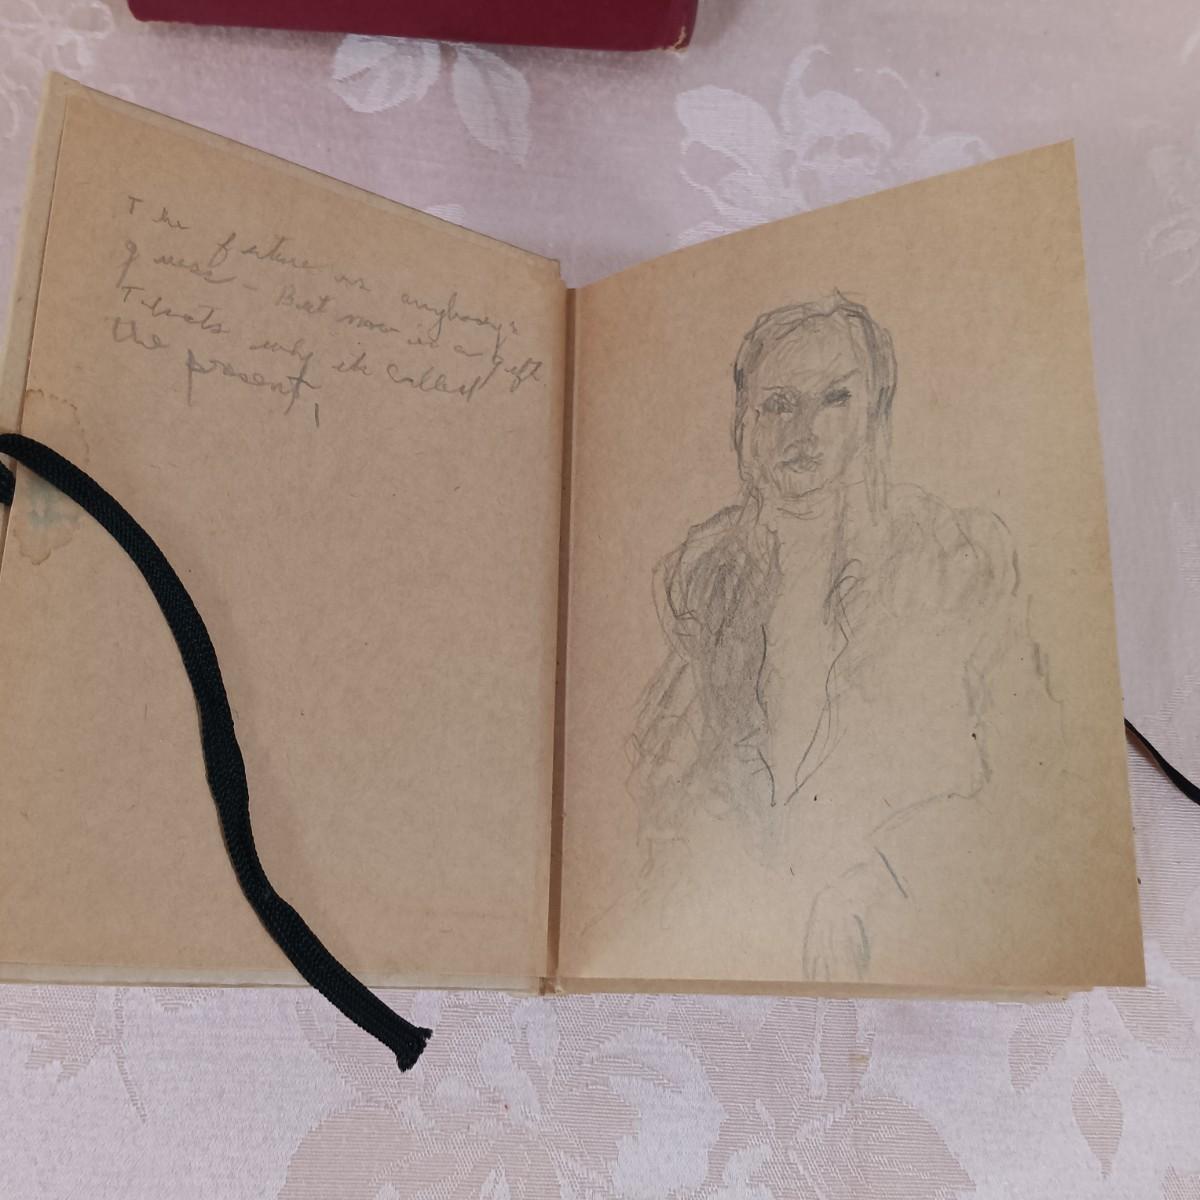 The future is anybody's
guess - But now is a gift
Thats why its called
the present,